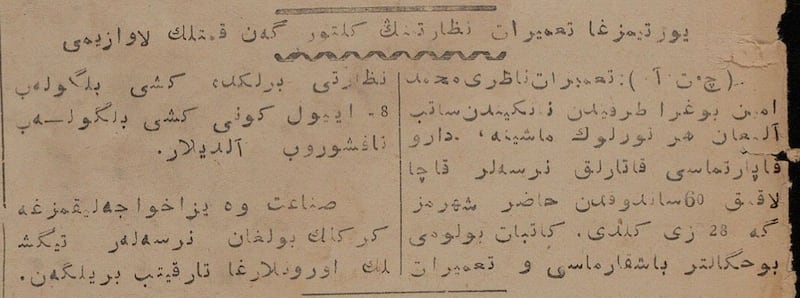 يورتيمزغا تعميرات نظارتىنىڭ كلتور گەن قمتلك لاوازيمى
(چ ت آ): تعميرات ناظرى محمد
امىن بوغرا طرفيدن نانكيندن ساتب
آلىغان هر تورلوك ماشينه، دارو
قاپارتماسى قاتارلق نرسەلر قاچا
لاقىق 60 ساندوقدن حاضر شهرمز
گە 28 زى كلدى. كاتبات بولومى
بوحگالتر باشقارماسى و تعميرات
نظارتى برلكدە كشى بلگولەب
8- ايپول كونى كشى بلگولــەب
تافشوروب آلديلار.
صناعت وە يزاخواجەليقمزغە
كركاك بولغان نرسەلەر تيگش
لك اورونلارغا تارقيتب بريلگەن.